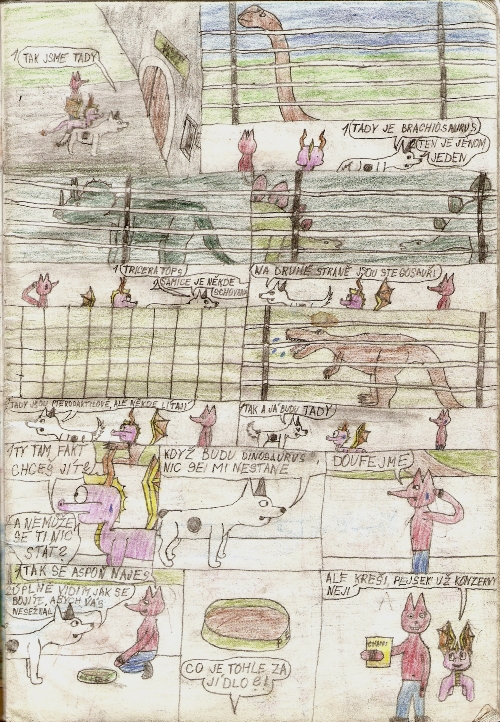 1 TAK JSME TADY
1 TADY JE BRACHIOSAURUS
2 TEN JE JENOM
JEDEN
1 TRICERATOPS
2 SAMICE JE NĚKDE
SCHOVANÁ
NA DRUHÉ STRANĚ JSOU STEGOSAUŘI
TADY JSOU PTERODAKTYLOVÉ, ALE NĚKDE LÍTAJÍ
TAK A JÁ BUDU TADY
1 TY TAM FAKT
CHCEŠ JÍT?
A NEMŮŽE
SE TI NIC
STÁT?
KDYŽ BUDU DINOSAURUS,
NIC SE MI NESTANE
DOUFEJME
1 TAK SE ASPOŇ NAJEŠ
ÚPLNĚ VIDÍM JAK SE
BOJÍTE, ABYCH VÁS
NESEŽRAL
CO JE TOHLE ZA
JÍDLO?!
ALE KREŠI, PEJSEK UŽ KONZERVY
NEJÍ